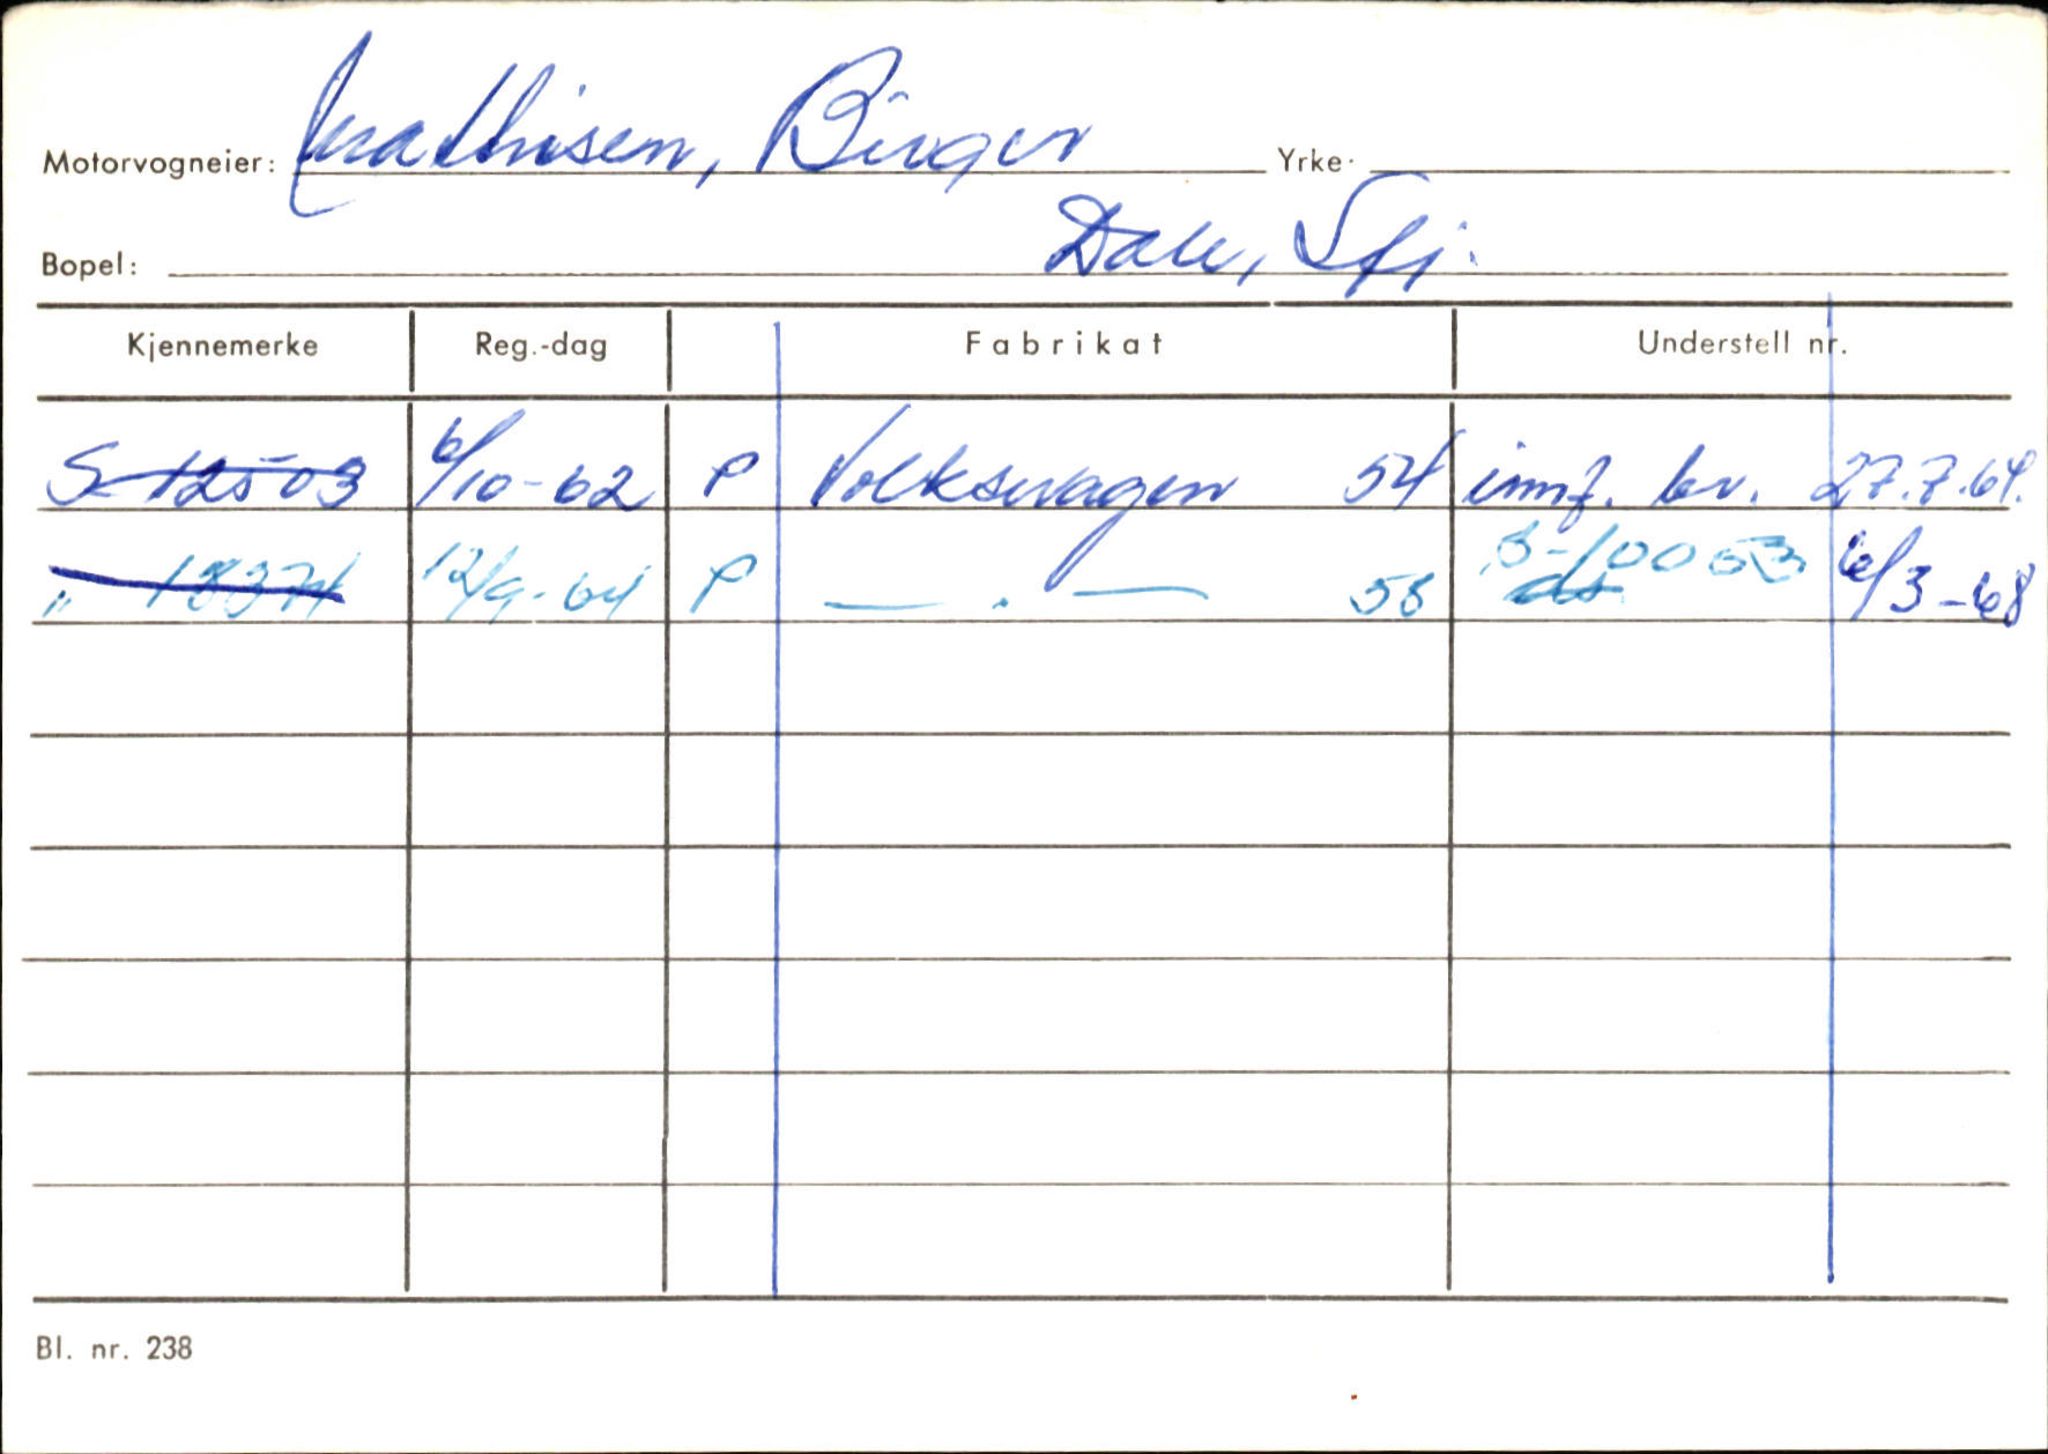 Motorvogneier: Mathisen, Birger Yrke.
Bopel: Dale, Sfj.
Kjennemerke Reg.-dag Fabrikat Understell nr.
S-12503 6/10-62 P Volkswagen 54 innf. bv. 27.7.64.
S-10053
" 12/9-64 P —.— 58 6/3-68
Bl. nr. 238